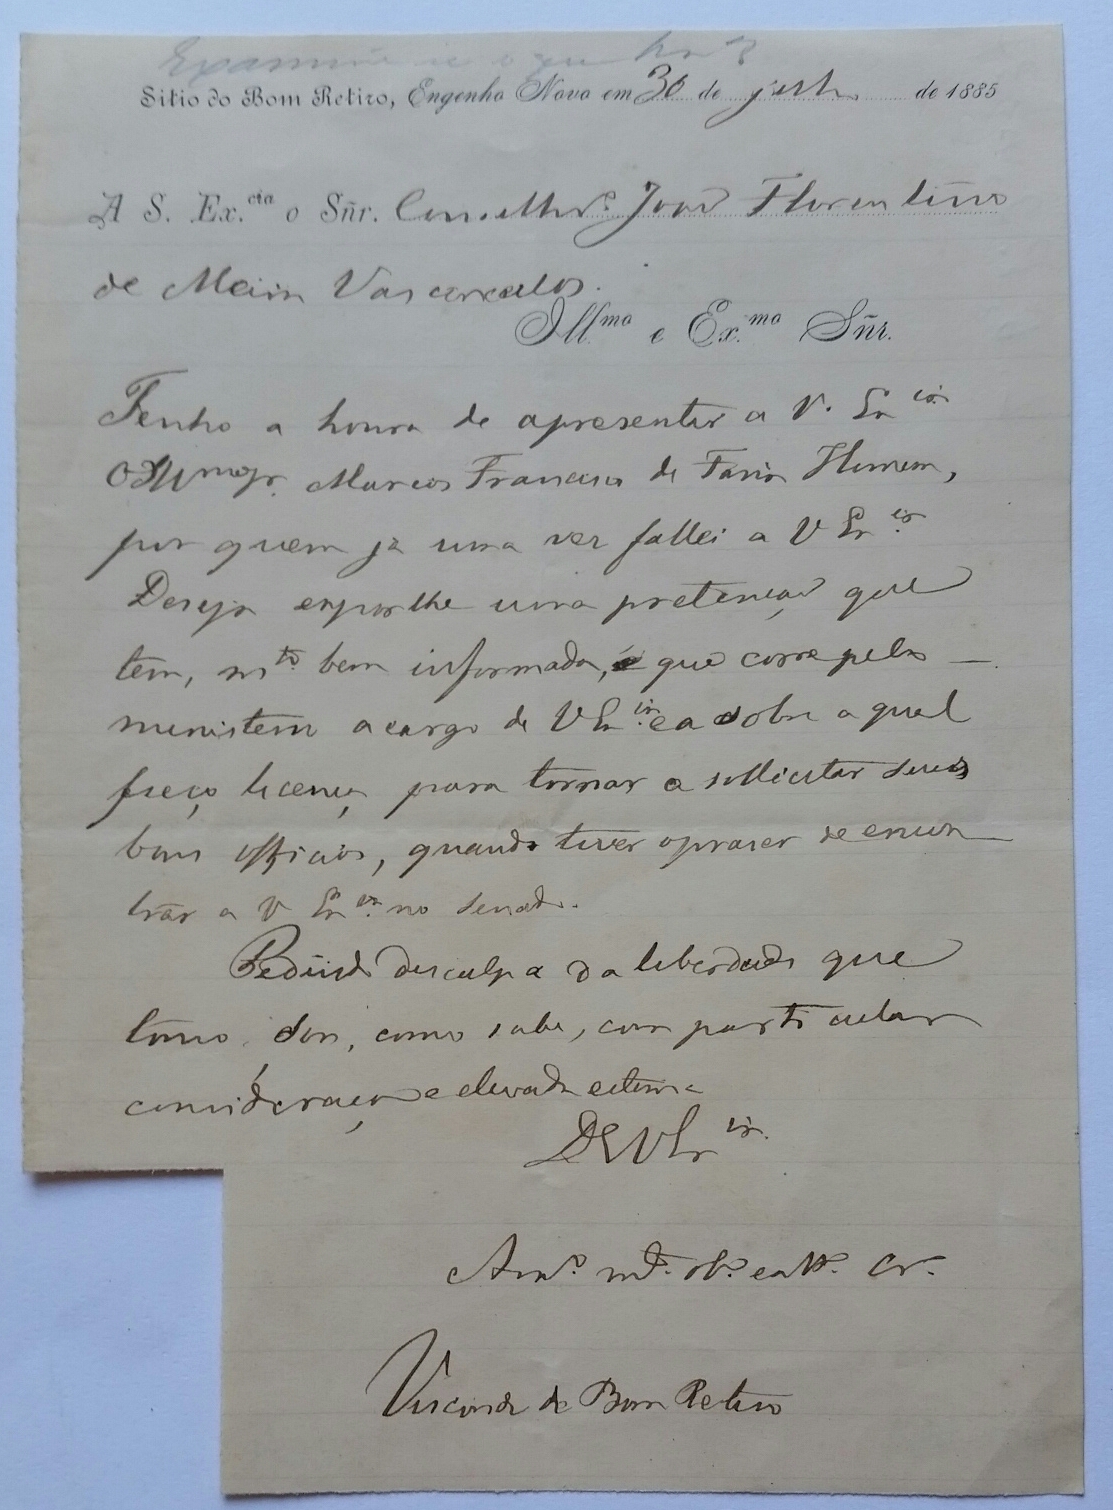 Examine se o que ha
Sitio do Bom Retiro, Engenho Novo em 30 de julho de 1885
A S. Ex.cia o Sñr. Conselhro. João Florentino
de Meira Vasconcellos.
Ill.mo e Ex.mo Sñr.
Tenho a honra de apresentar a V. Ex cia.
O Illmo Sr. Marcos Francisco de Faria Homem,
por quem já uma vez fallei a V Ex cia.
Deseja expor lhe uma pretenção que
tem, mto. bem informada, e que corre pelo
ministerio a cargo de V Ex cia. e a sobre a qual
peço licença para tornar a sollicitar seus
bons officios, quando tiver o prazer de encon
trar a V Ex cia. no senado.
Pedindo desculpa da liberdade que
tomo, sou, como sabe, com particular
consideração e elevada estima
De V Ex cia.
Amo. mto. obo. e atto. Cro.
Visconde de Bom Retiro